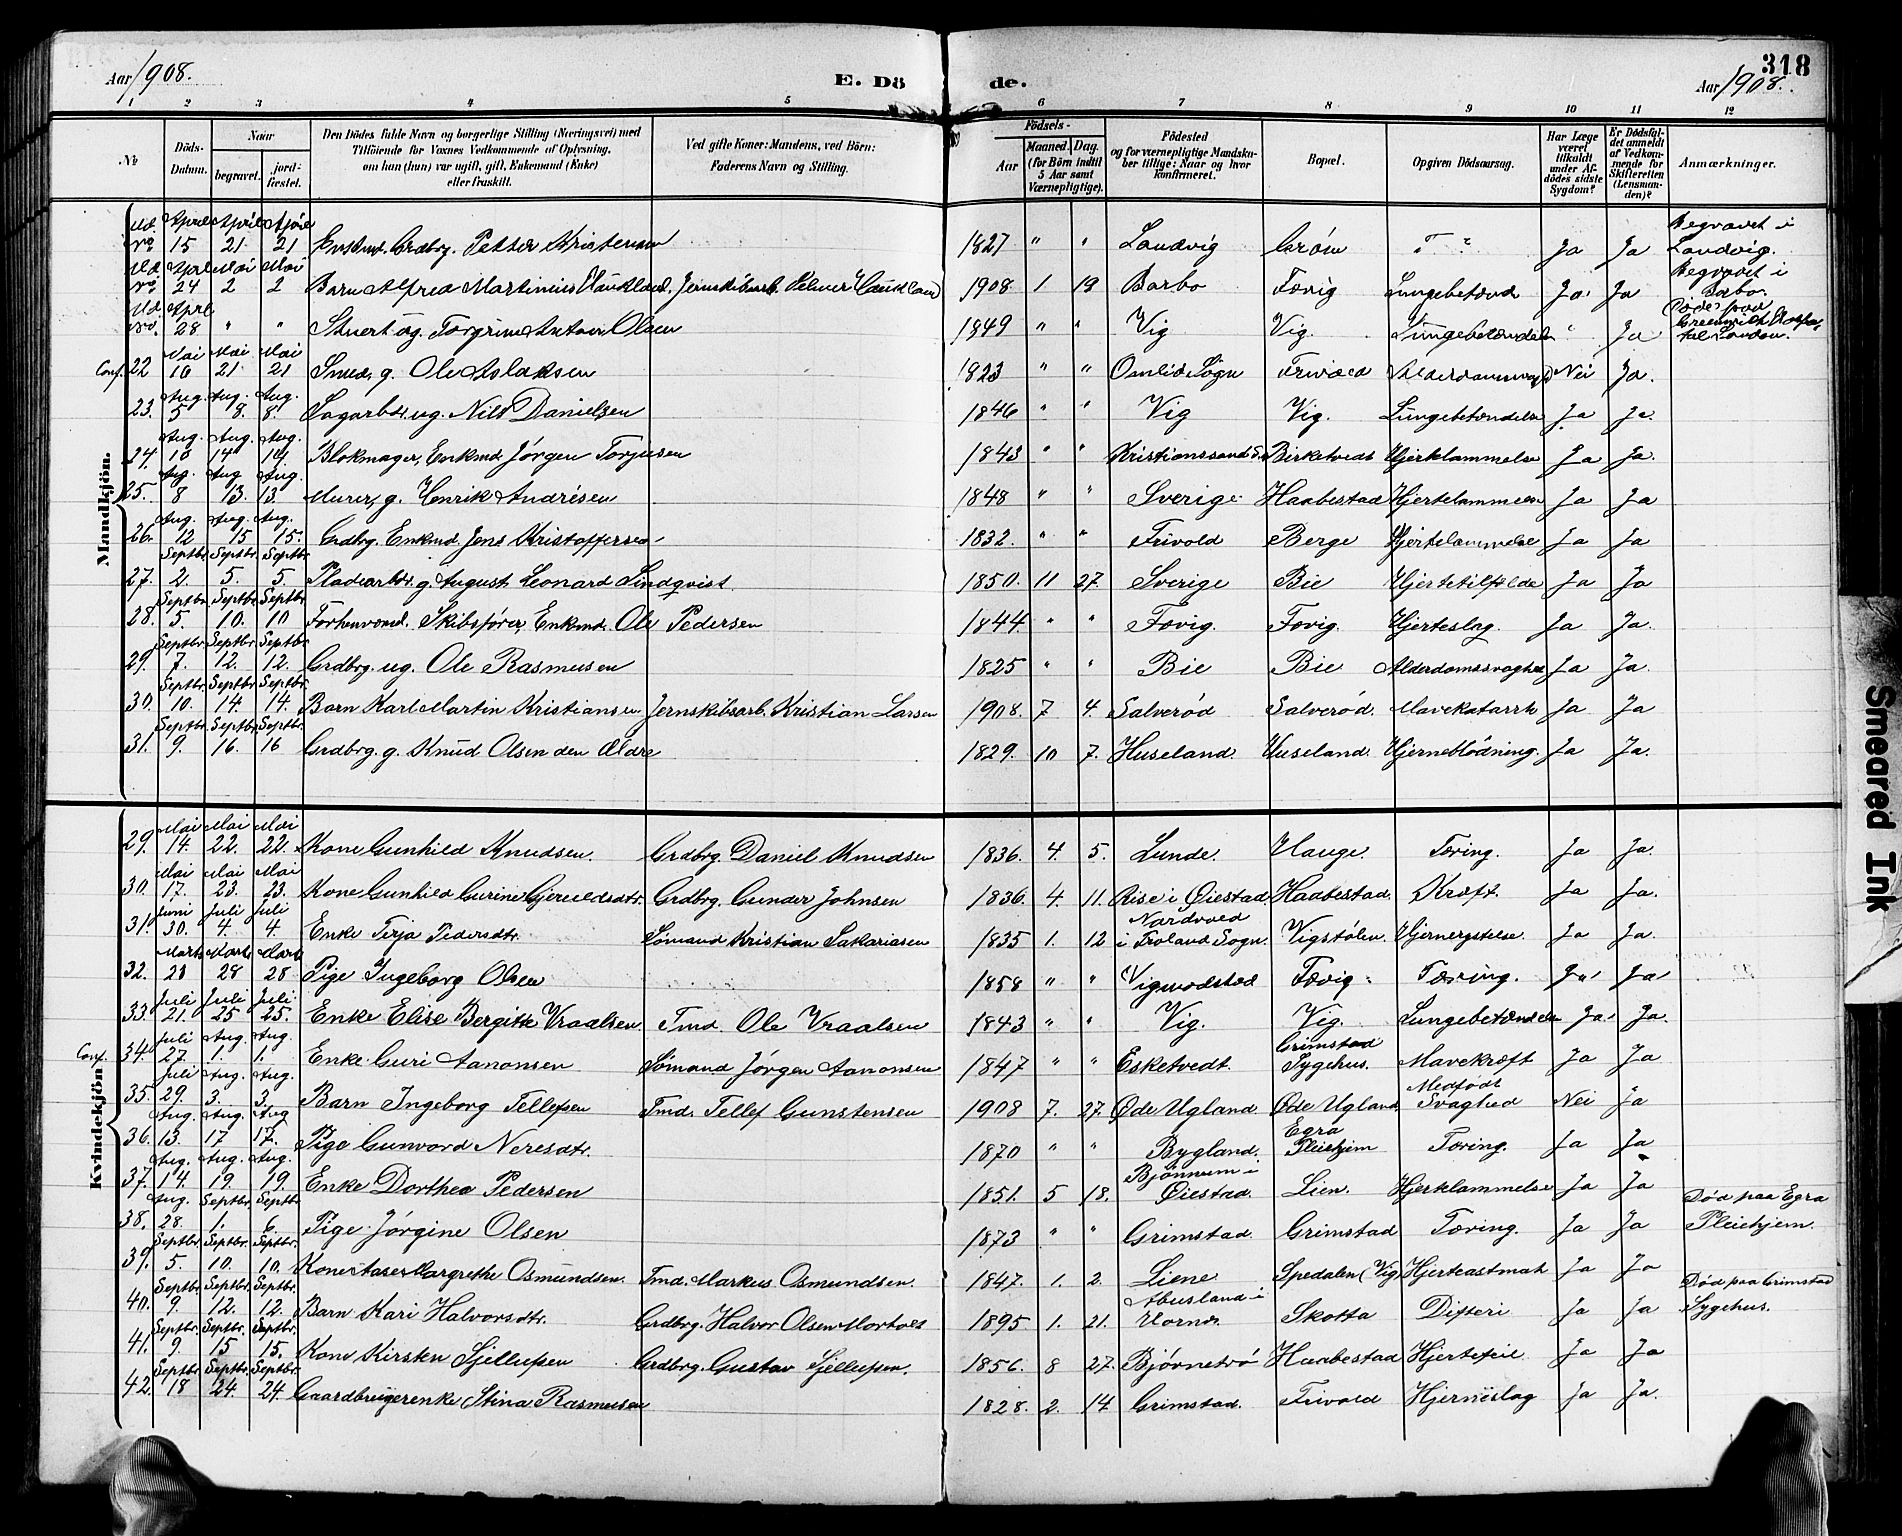 Aar 1908.
E. Dö
de.
318
Aar 1908.
1 2 3 4 5 6 7 8 9 10 11 12
No
Döds-Datum.
Naar
begravet.
jord-fæstet.
Den Dödes fulde Navn og borgerlige Stilling (Næringsvei) med
Tilföiende for Voxnes Vedkommende af Oplysning,
om han (hun) var ugift, gift, Enkemand (Enke)
eller fraskilt.
Ved gifte Koner: Mandens, ved Börn:
Faderens Navn og Stilling.
Födsels-
Aar
Maaned. Dag.
(for Börn indtil
5 Aar samt
Værnepligtige).
Födested
og for værnepligtige Mandskaber tillige: Naar og hvor
konfirmeret.
Bopæl.
Opgiven Dödsaarsag.
Har Læge
været
tilkaldt
under Afdödes sidste
Sygdom?
Er Dödsfaldet anmeldt
af Vedkommende for
Skifteretten
(Lensmanden)?
Anmærkninger.
Mandkjön.
Md. No April 15 April 21 April 21 Enkmd. Grdbrg. Petter Kristensen 1827 " " Landvig Gróm " " Ja Ja Begravet i Landvig.
Md. No April 24 Mai 2 Mai 2 Barn Alfred Martinius Haukland. Jernskibsarb. Helmer Haukland 1908 1 19 Barbo Fævig Lungebetænd Ja Ja Begravet i Barbo.
Md. No. April 28 " " Stuert ug. Torgrim Antoni Olsen 1849 " " Vig Vig. Lungebetændelse " Ja Død paa Greenwich Hospital London.
Conf. 22 Mai 10 Mai 21 Mai 21 Smed, g. Ole Aslaksen 1823 " " Omlid Sogn Frivold Alderdomssvagh. Nei Ja.
23. Aug. 5 Aug. 8. Aug. 8. Sagarbdr. ug. Nils Danielsen 1846 " " Vig Vig. Lungebetændelse Ja Ja.
24. Aug. 10 Aug. 14 Aug. 14 Blokmager, Enkmd Jørgen Torjusen 1843 " " Kristianssand S. Birketvedt Hjerklammelse Ja Ja.
25. Aug. 8 Aug. 13. Aug. 13. Murer, g. Henrik Andrésen 1848 " " Sverige Haabestad Hjertelammelse Ja Ja
26. Aug. 12 Aug. 15 Aug. 15. Grdbrg. Enkmd. Jens Kristoffersen 1832. " " Frivold Berge Hjertelammelse Ja Ja
27. Septbr. 2. Septbr. 5. Septbr. 5. Pladearbdr. g. August Leonard Lindqvist. 1850. 11 27. Sverige Bie Hjertetilfælde Ja Ja
28. Septbr. 5. Septbr. 10. Septbr. 10 Forhenværnd. Skibsfører, Enkmd. Ole Pedersen 1844 " " Fævig. Fævig. Hjerteslag. Ja Ja.
29. Septbr. 7. Septbr. 12. Septbr. 12. Grdbrg. ug. Ole Rasmusen 1825 " " Bie Bie Alderdomssvaghed Ja Ja.
30. Septbr. 10. Septbr. 14. Septbr. 14. Barn Karl Martin Kristiansen Jernskibsarb. Kristian Larsen 1908. 7 4. Salverød Salverød. Mavekatarrh Ja Ja
31. Septbr. 9. Septbr. 16. Septbr. 16 Grdbrg. g. Knud Olsen den Ældre 1829. 10 7. Huseland. Huseland. Hjerneblödning. Ja Ja.
Kvindekjön.
29. Mai 14. Mai 22. Mai 22. Kone Gunhild Knudsen. Grdbrg. Daniel Knudsen 1836. 4. 5. Lunde. Hauge. Tæring. Ja Ja.
30. Mai 17. Mai 23. Mai 23. Kone Gunhild Gurine Gjeruldsdtr. Grdbrg. Gunder Johnsen 1836. 4. 11. Rise i Øiestad Haabestad. Kræft. Ja Ja.
31. Juni 30. Juli 4. Juli 4. Enke Terja Pedersdtr. Sømand Kristian Sakariasen 1835 1. 12 Nardvold i Froland Sogn. Vigstølen. Hjernerystelse. Ja Ja.
32. Marts 23 Marts 28 Marts 28 Pige Ingeborg Olsen 1858 " " Vigmodstad Fævig Tæring. Ja Ja
33. Juli 21. Juli 25 Juli 25. Enke Elise Bergitte Vraalsen Tmd. Ole Vraalsen 1843 " " Vig. Vig. Lungebetændelse Ja. Ja.
Conf. 34. Juli 27. Aug. 1. Aug. 1. Enke Guri Aanonsen Sømand Jørgen Aanonsen 1847 " " Esketvedt. Grimstad Sygehus. Mavekræft Ja Ja
35. Juli 29. Aug. 3. Aug. 3. Barn Ingeborg Tellefsen Tmd. Tellef Gunstensen 1908 7. 27. Øde Ugland. Øde Ugland. Medfødt Svaghed Nei Ja
36. Aug. 13. Aug. 17 Aug 17. Pige Gunvord Neresdtr. 1870 " " Bygland. Egra Pleiehjem Tæring. Ja Ja
37. Aug. 14. Aug. 19. Aug. 19. Enke Dorthea Pedersen 1851. 5 18. Bjönnum i Øiestad. Lien. Hjerklammelse Ja Ja
38. Aug. 28. Septbr. 1. Septbr. 6. Pige Jørgine Olsen 1873 " " Grimstad. Grimstad Tæring. Ja Ja Död paa Egra Pleiehjem.
39. Septbr. 5. Septbr. 10. Septbr. 10. Kone Aase Margrethe Osmundsen. Tmd. Markus Osmundsen. 1847. 1. 2. Liene Spedalen (Vig) Hjerteastmah Ja Ja
40. Septbr. 9. Septbr. 12. Septbr. 12. Barn Kari Halvorsdtr. Grdbrg. Halvor Olsen 1895. 1. 21. Abusland i Hornes. Skotta Difteri Ja Ja Död paa Grimstad Sygehus.
41. Septbr. 9. Septbr. 15 Septbr. 15. Kone Kirsten Sjellufsen Grdbrg. Gustav Sjellufsen. 1856. 8 27. Bjørnetrø Haabestad Hjertefeil Ja Ja
42. Septbr. 18 Septbr. 24. Septbr. 24. Gaardbrugerenke Stina Rasmussen 1828. 2. 14 Grimstad. Frivold Hjerneslag Ja Ja.
Smeared Ink